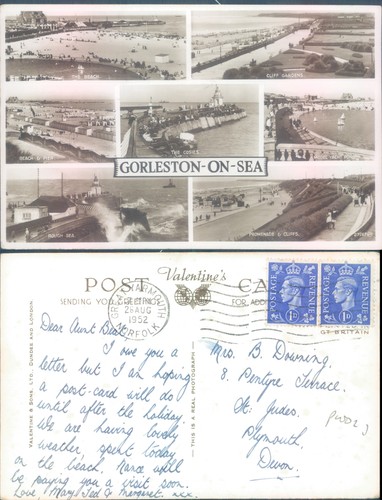 THE BEACH
CLIFF GARDENS.
BEACH & PIER
THE QUOIES.
GORLESTON-ON-SEA
ROUGH SEA.
PROMENADE & CLIFFS.
POST Valentine's CA
SENDING YOU
FOR ADD
YARMOUTH
28 AUG
1952
NORFOLK
POSTAGE REVENUE 1D
POSTAGE REVENUE 1D
GT BRITAIN
VALENTINE & SONS, LTD. DUNDEE AND LONDON.
THIS IS A REAL PHOTOGRAPH
Dear Aunt Beat,
I owe you a
letter but I am hoping
a post-card will do
until after the holiday.
We are having lovely
weather, spent today
on the beach. Nance will
be paying you a visit soon.
Love Mary Ted & Margaret. xxx.
Mrs. B. Downing,
8. Pentyre Terrace,
St. Judes.
Plymouth.
Devon.